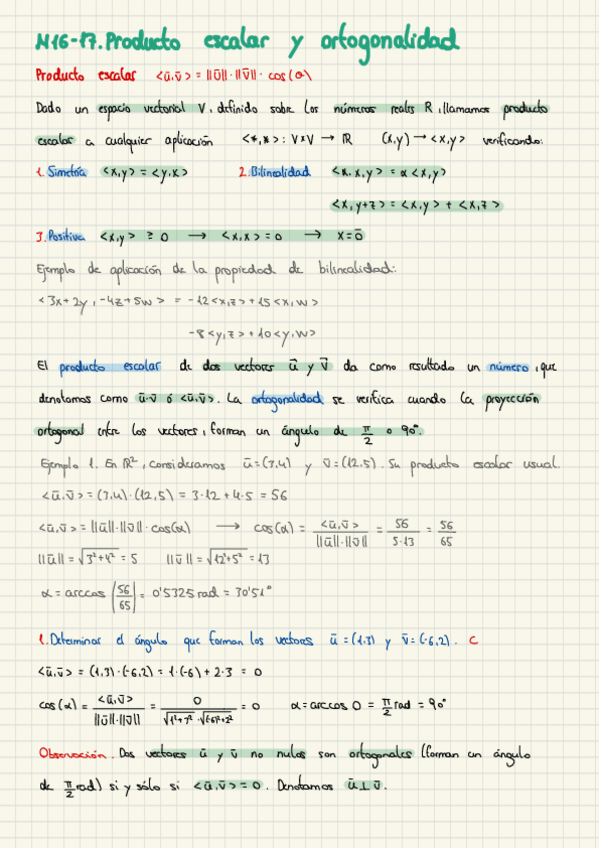 N16-17. Producto escalar y ortogonalidad
Producto escalar <ū,v̄> = ||ū||·||v̄||·cos(α)
Dado un espacio vectorial V, definido sobre los números reales R, llamamos producto
escalar a cualquier aplicación <*,*>: V×V → R (x,y) → <x,y> verificando:
1. Simetría <x,y> = <y,x> 2. Bilinealidad <α.x,y> = α<x,y>
<x,y+z> = <x,y> + <x,z>
3. Positiva <x,y> ≥ 0 → <x,x> = 0 → x = ō
Ejemplo de aplicación de la propiedad de bilinealidad:
<3x+2y, -4z+5w> = -12<x,z> + 15<x,w>
-8<y,z> + 10<y,w>
El producto escalar de dos vectores ū y v̄ da como resultado un número, que
denotamos como ū·v̄ ó <ū,v̄>. La ortogonalidad se verifica cuando la proyección
ortogonal entre los vectores, forman un ángulo de π/2 o 90°.
Ejemplo 1. En R², consideramos ū=(3,4) y v̄=(12,5). Su producto escalar usual.
<ū,v̄> = (3,4)·(12,5) = 3·12 + 4·5 = 56
<ū,v̄> = ||ū||·||v̄||·cos(α) → cos(α) = <ū,v̄> / ||ū||·||v̄|| = 56 / 5·13 = 56/65
||ū|| = √3²+4² = 5 ||v̄|| = √12²+5² = 13
α = arccos |56/65| = 0'5325 rad = 30'51°
1. Determinar el ángulo que forman los vectores ū = (1,3) y v̄ = (-6,2). C
<ū,v̄> = (1,3)·(-6,2) = 1·(-6) + 2·3 = 0
cos(α) = <ū,v̄> / ||ū||·||v̄|| = 0 / √1²+3² · √(-6)²+2² = 0 α = arccos 0 = π/2 rad = 90°
Observación. Dos vectores ū y v̄ no nulos son ortogonales (forman un ángulo
de π/2 rad) si y sólo si <ū,v̄> = 0. Denotamos ū⊥v̄.